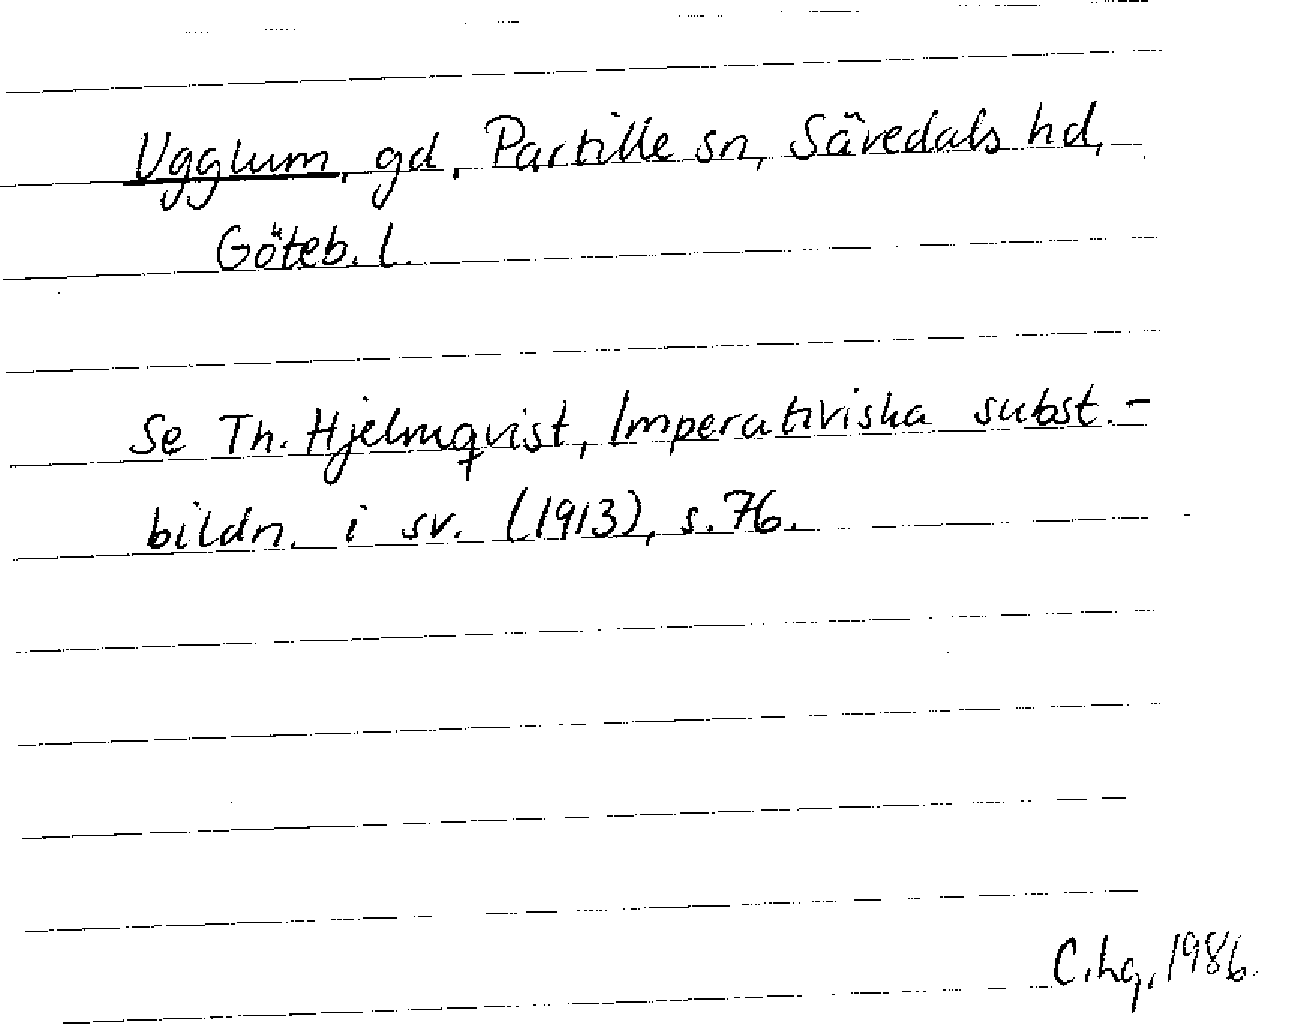 Ugglum, gd, Partille sn, Sävedals hd,
Göteb. l.
Se Th. Hjelmqvist, Imperativiska subst.-
bildn. i sv. (1913), s. 76.
C.hq, 1986.